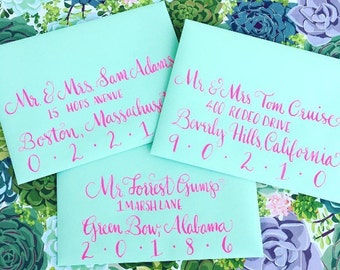 Mr. & Mrs. Sam Adams
15 HOPS AVENUE
Boston, Massachus
0 · 2 · 2 · 1
Mr. & Mrs. Tom Cruise
400 RODEO DRIVE
Beverly Hills, California
9 · 0 · 2 · 1 · 0
Mr. Forrest Gump
1 MARSH LANE
Green Bow, Alabama
2 · 0 · 1 · 8 · 6